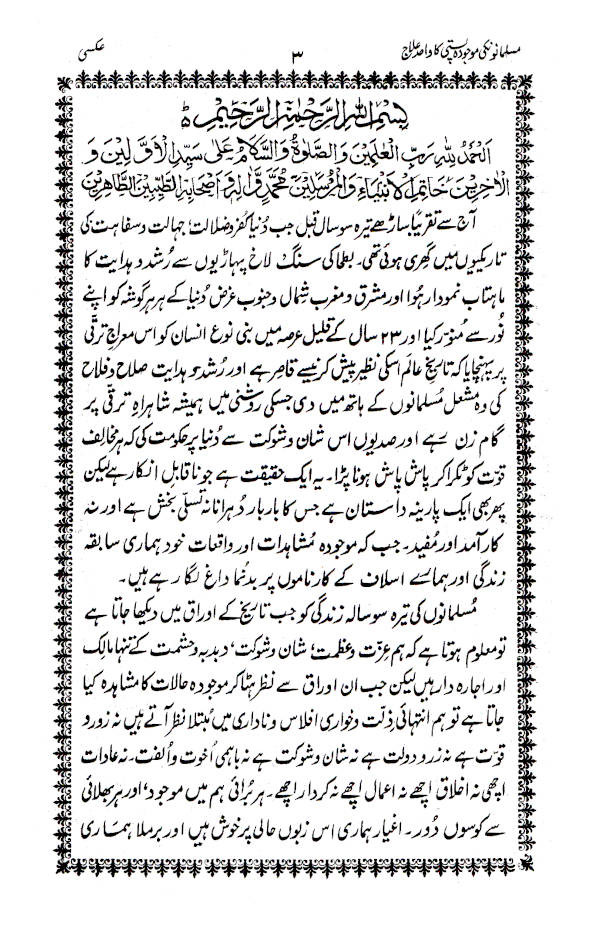 مسلمانونکی موجودہ پستی کا واحد علاج ۳ عکسی
بِسْمِ اللهِ الرَّحْمٰنِ الرَّحِيْمِ ط
اَلْحَمْدُ لِلّٰهِ رَبِّ الْعٰلَمِيْنَ وَالصَّلٰوةُ وَالسَّلَامُ عَلٰى سَيِّدِ الْاَوَّلِيْنَ وَ
الْاٰخِرِيْنَ خَاتَمِ الْاَنْبِيَاءِ وَالْمُرْسَلِيْنَ مُحَمَّدٍ وَّاٰلِهٖ وَاَصْحَابِهِ الطَّيِّبِيْنَ الطَّاهِرِيْنَ
آج سے تقریبًا ساڑھے تیرہ سو سال قبل جب دُنیا کفر و ضلالت، جہالت و سفاہت کی
تاریکیوں میں گھری ہوئی تھی۔ بطحا کی سنگ لاخ پہاڑیوں سے رُشد و ہدایت کا
ماہتاب نمودار ہُوا اور مشرق و مغرب شمال و جنوب غرض دُنیا کے ہر ہر گوشہ کو اپنے
نُور سے منوّر کیا اور ۲۳ سال کے قلیل عرصہ میں بنی نوع انسان کو اس معراجِ ترقّی
پر پہنچایا کہ تاریخِ عالم اسکی نظیر پیش کرنیسے قاصر ہے اور رُشد و ہدایت صلاح و فلاح
کی وہ مشعل مُسلمانوں کے ہاتھ میں دی جسکی روشنی میں ہمیشہ شاہراہِ ترقی پر
گام زن رہے اور صدیوں اس شان و شوکت سے دُنیا پر حکومت کی کہ ہر مخالِف
قوّت کو ٹکرا کر پاش پاش ہونا پڑا۔ یہ ایک حقیقت ہے جو ناقابل انکار ہے لیکن
پھر بھی ایک پارینہ داستان ہے جس کا بار بار دُہرانا نہ تسلّی بخش ہے اور نہ
کارآمد اور مُفید۔ جب کہ موجودہ مُشاہدات اور واقعات خود ہماری سابقہ
زندگی اور ہمارے اسلاف کے کارناموں پر بدنُما داغ لگا رہے ہیں۔
مُسلمانوں کی تیرہ سو سالہ زندگی کو جب تاریخ کے اوراق میں دیکھا جاتا ہے
تو معلوم ہوتا ہے کہ ہم عِزّت و عظمت، شان و شوکت، دبدبہ و حشمت کے تنہا مالِک
اور اجارہ دار ہیں لیکن جب ان اوراق سے نظر ہٹا کر موجودہ حالات کا مشاہدہ کیا
جاتا ہے تو ہم انتہائی ذِلّت و خواری افلاس و ناداری میں مُبتلا نظر آتے ہیں نہ زور و
قوّت ہے نہ زر و دولت ہے نہ شان و شوکت ہے نہ باہمی اُخوت و اُلفت۔ نہ عادات
اچھی نہ اخلاق اچھے نہ اعمال اچھے نہ کردار اچھے۔ ہر بُرائی ہم میں موجود، اور ہر بھلائی
سے کوسوں دُور۔ اغیار ہماری اس زبوں حالی پر خوش ہیں اور برملا ہماری